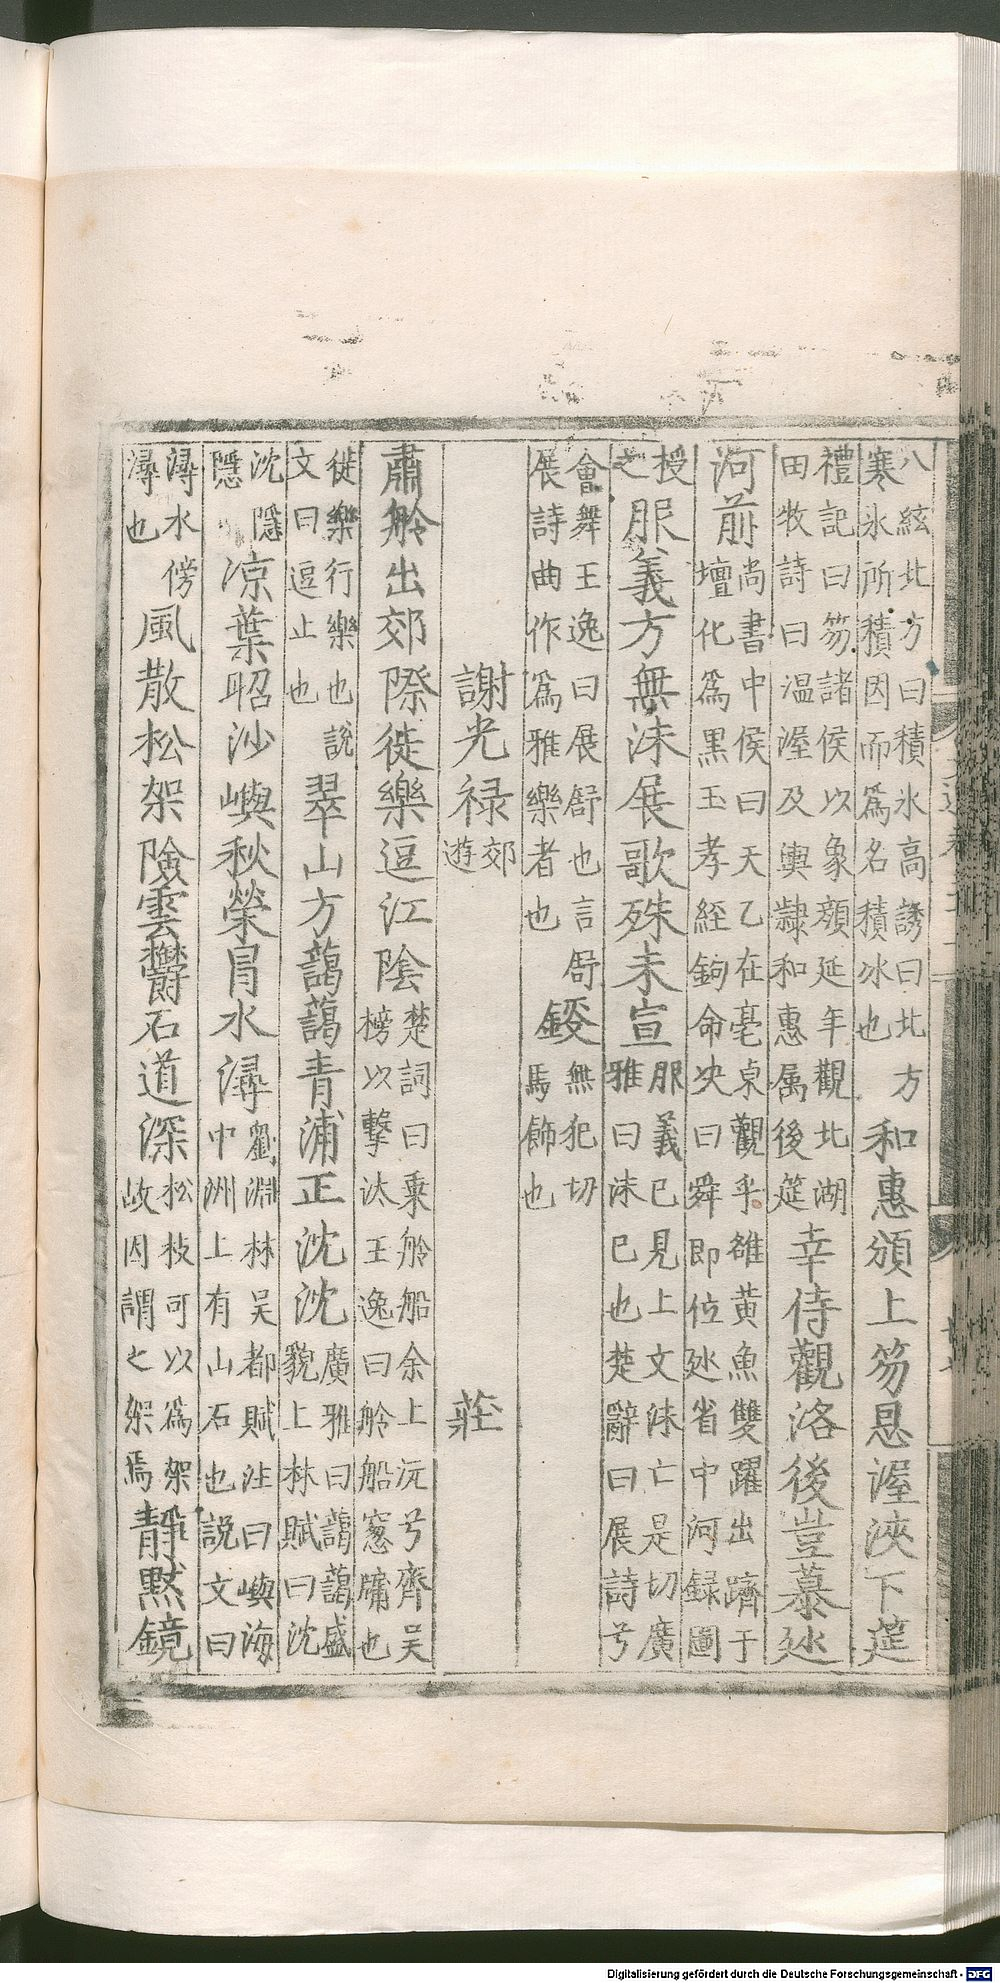 八絃北方曰積氷高誘曰北方
寒氷所積因而爲名積冰也
和惠頒上笏恩渥浹下筵
禮記曰笏諸侯以象顔延年觀北湖
田牧詩曰温渥及輿隷和惠属後筵
幸侍觀洛後豈慕巡
河前
尚書中侯曰天乙在亳東觀乎雒黄魚雙躍出躋于
壇化爲黒玉孝經鉤命決曰舜即位巡省中河録圖
授
之
服義方無沬展歌殊未宣
服義已見上文沬亡是切廣
雅曰沬已也楚辭曰展詩兮
會舞王逸曰展舒也言舒
展詩曲作爲雅樂者也
鋄
無犯切
馬飾也
謝光禄
郊
遊
莊
肅舲出郊際徙樂逗江隂
楚詞曰乗舲船余上沅兮齊吴
榜以擊汰王逸曰舲船窓牖也
徙樂行樂也説
文曰逗止也
翠山方藹藹青浦正沈沈
廣雅曰藹藹盛
貌上林賦曰沈
沈隱
隱
凉葉昭沙嶼秋榮冒水潯
劉淵林吴都賦注曰嶼海
中洲上有山石也説文曰
潯水傍
潯也
風散松架險雲鬱石道深
松枝可以爲架
故因謂之架焉
靜黙鏡
Digitalisierung gefördert durch die Deutsche Forschungsgemeinschaft - DFG